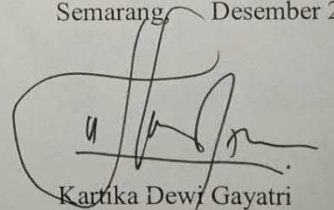 Semarang, Desember 2
Kartika Dewi Gayatri